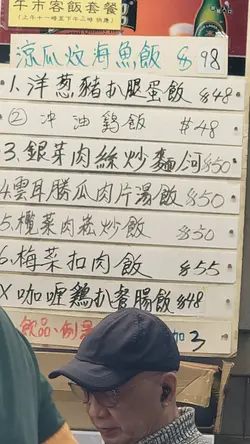 午市客飯套餐
(上午十一時至下午二時 供應)
涼瓜炆海魚飯 $98
1.洋葱豬扒腿蛋飯 $48
② 冲油鷄飯 $48
3.銀芽肉絲炒麵/河 $50
4.雲耳勝瓜肉片湯飯 $50
5.欖菜肉崧炒飯 $50
6.梅菜扣肉飯 $55
X 咖喱鷄扒餐腸飯 $48
飲品:例湯 加3